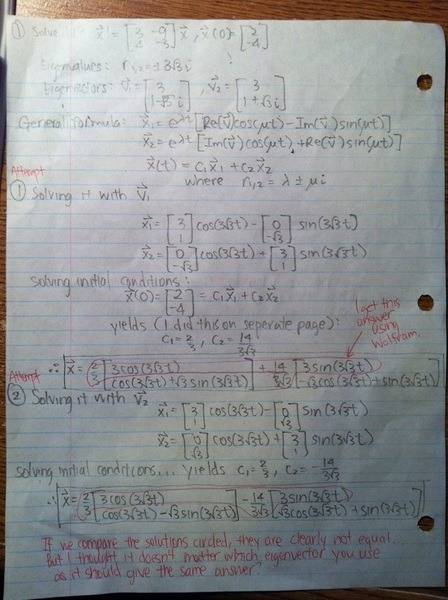 ① Solve x⃗' = [3 -9; 4 -3] x⃗, x⃗(0) = [2; -4]
Eigenvalues: r₁,₂ = ±3√3 i
Eigenvectors: v⃗₁ = [3; 1-√3 i], v⃗₂ = [3; 1+√3 i]
General formula: x⃗₁ = e^λt [Re(v⃗)cos(μt) - Im(v⃗) sin(μt)]
x⃗₂ = e^λt [Im(v⃗) cos(μt) + Re(v⃗) sin(μt)]
x⃗(t) = c₁x⃗₁ + c₂x⃗₂
where r₁,₂ = λ ± μi
Attempt
① Solving it with v⃗₁
x⃗₁ = [3; 1] cos(3√3t) - [0; -√3] sin(3√3t)
x⃗₂ = [0; -√3] cos(3√3t) + [3; 1] sin(3√3t)
solving initial conditions:
x⃗(0) = [2; -4] = c₁x⃗₁ + c₂x⃗₂
yields (I did this on seperate page):
c₁ = 2/3, c₂ = 14/3√3
I get this
answer
using
Wolfram.
∴ x⃗ = 2/3 [3cos(3√3t); cos(3√3t) + √3 sin(3√3t)] + 14/3√3 [3sin(3√3t); -√3 cos(3√3t) + sin(3√3t)]
Attempt
② Solving it with v⃗₂
x⃗₁ = [3; 1] cos(3√3t) - [0; √3] sin(3√3t)
x⃗₂ = [0; √3] cos(3√3t) + [3; 1] sin(3√3t)
solving initial conditions... yields c₁ = 2/3, c₂ = -14/3√3
∴ x⃗ = 2/3 [3cos(3√3t); cos(3√3t) - √3 sin(3√3t)] - 14/3√3 [3sin(3√3t); √3 cos(3√3t) + sin(3√3t)]
If we compare the solutions circled, they are clearly not equal...
But I thought it doesn't matter which eigenvector you use
as it should give the same answer?